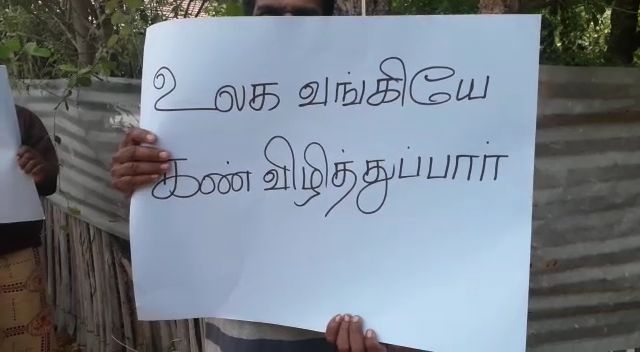 உலக வங்கியே
கண் விழித்துப்பார்